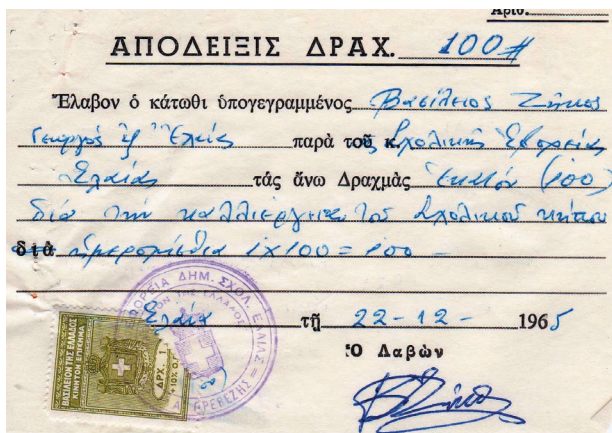 Ἀριθ.
ΑΠΟΔΕΙΞΙΣ ΔΡΑΧ. 100#
Ἔλαβον ὁ κάτωθι ὑπογεγραμμένος Βασίλειος Ζήκος
Γεωργός ἐξ Ἐλαίας παρὰ τοῦ κ. Σχολικῆς Ἐφορείας
Ἐλαίας τάς ἄνω Δραχμὰς Ἑκατόν (100)
διά τήν καλλιέργειαν τοῦ Σχολικοῦ κήπου
διὰ ἡμερομίσθια 1Χ100 = 100 -
Ἐλαία τῇ 22-12- 1965
Ὁ Λαβὼν
ΔΗΜ. ΣΧΟΛ. ΕΛΑΙΑΣ
ΠΡΕΒΕΖΗΣ
ΒΑΣΙΛΕΙΟΝ ΤΗΣ ΕΛΛΑΔΟΣ
ΚΙΝΗΤΟΝ ΕΠΙΣΗΜΑ
ΔΡΧ. 1